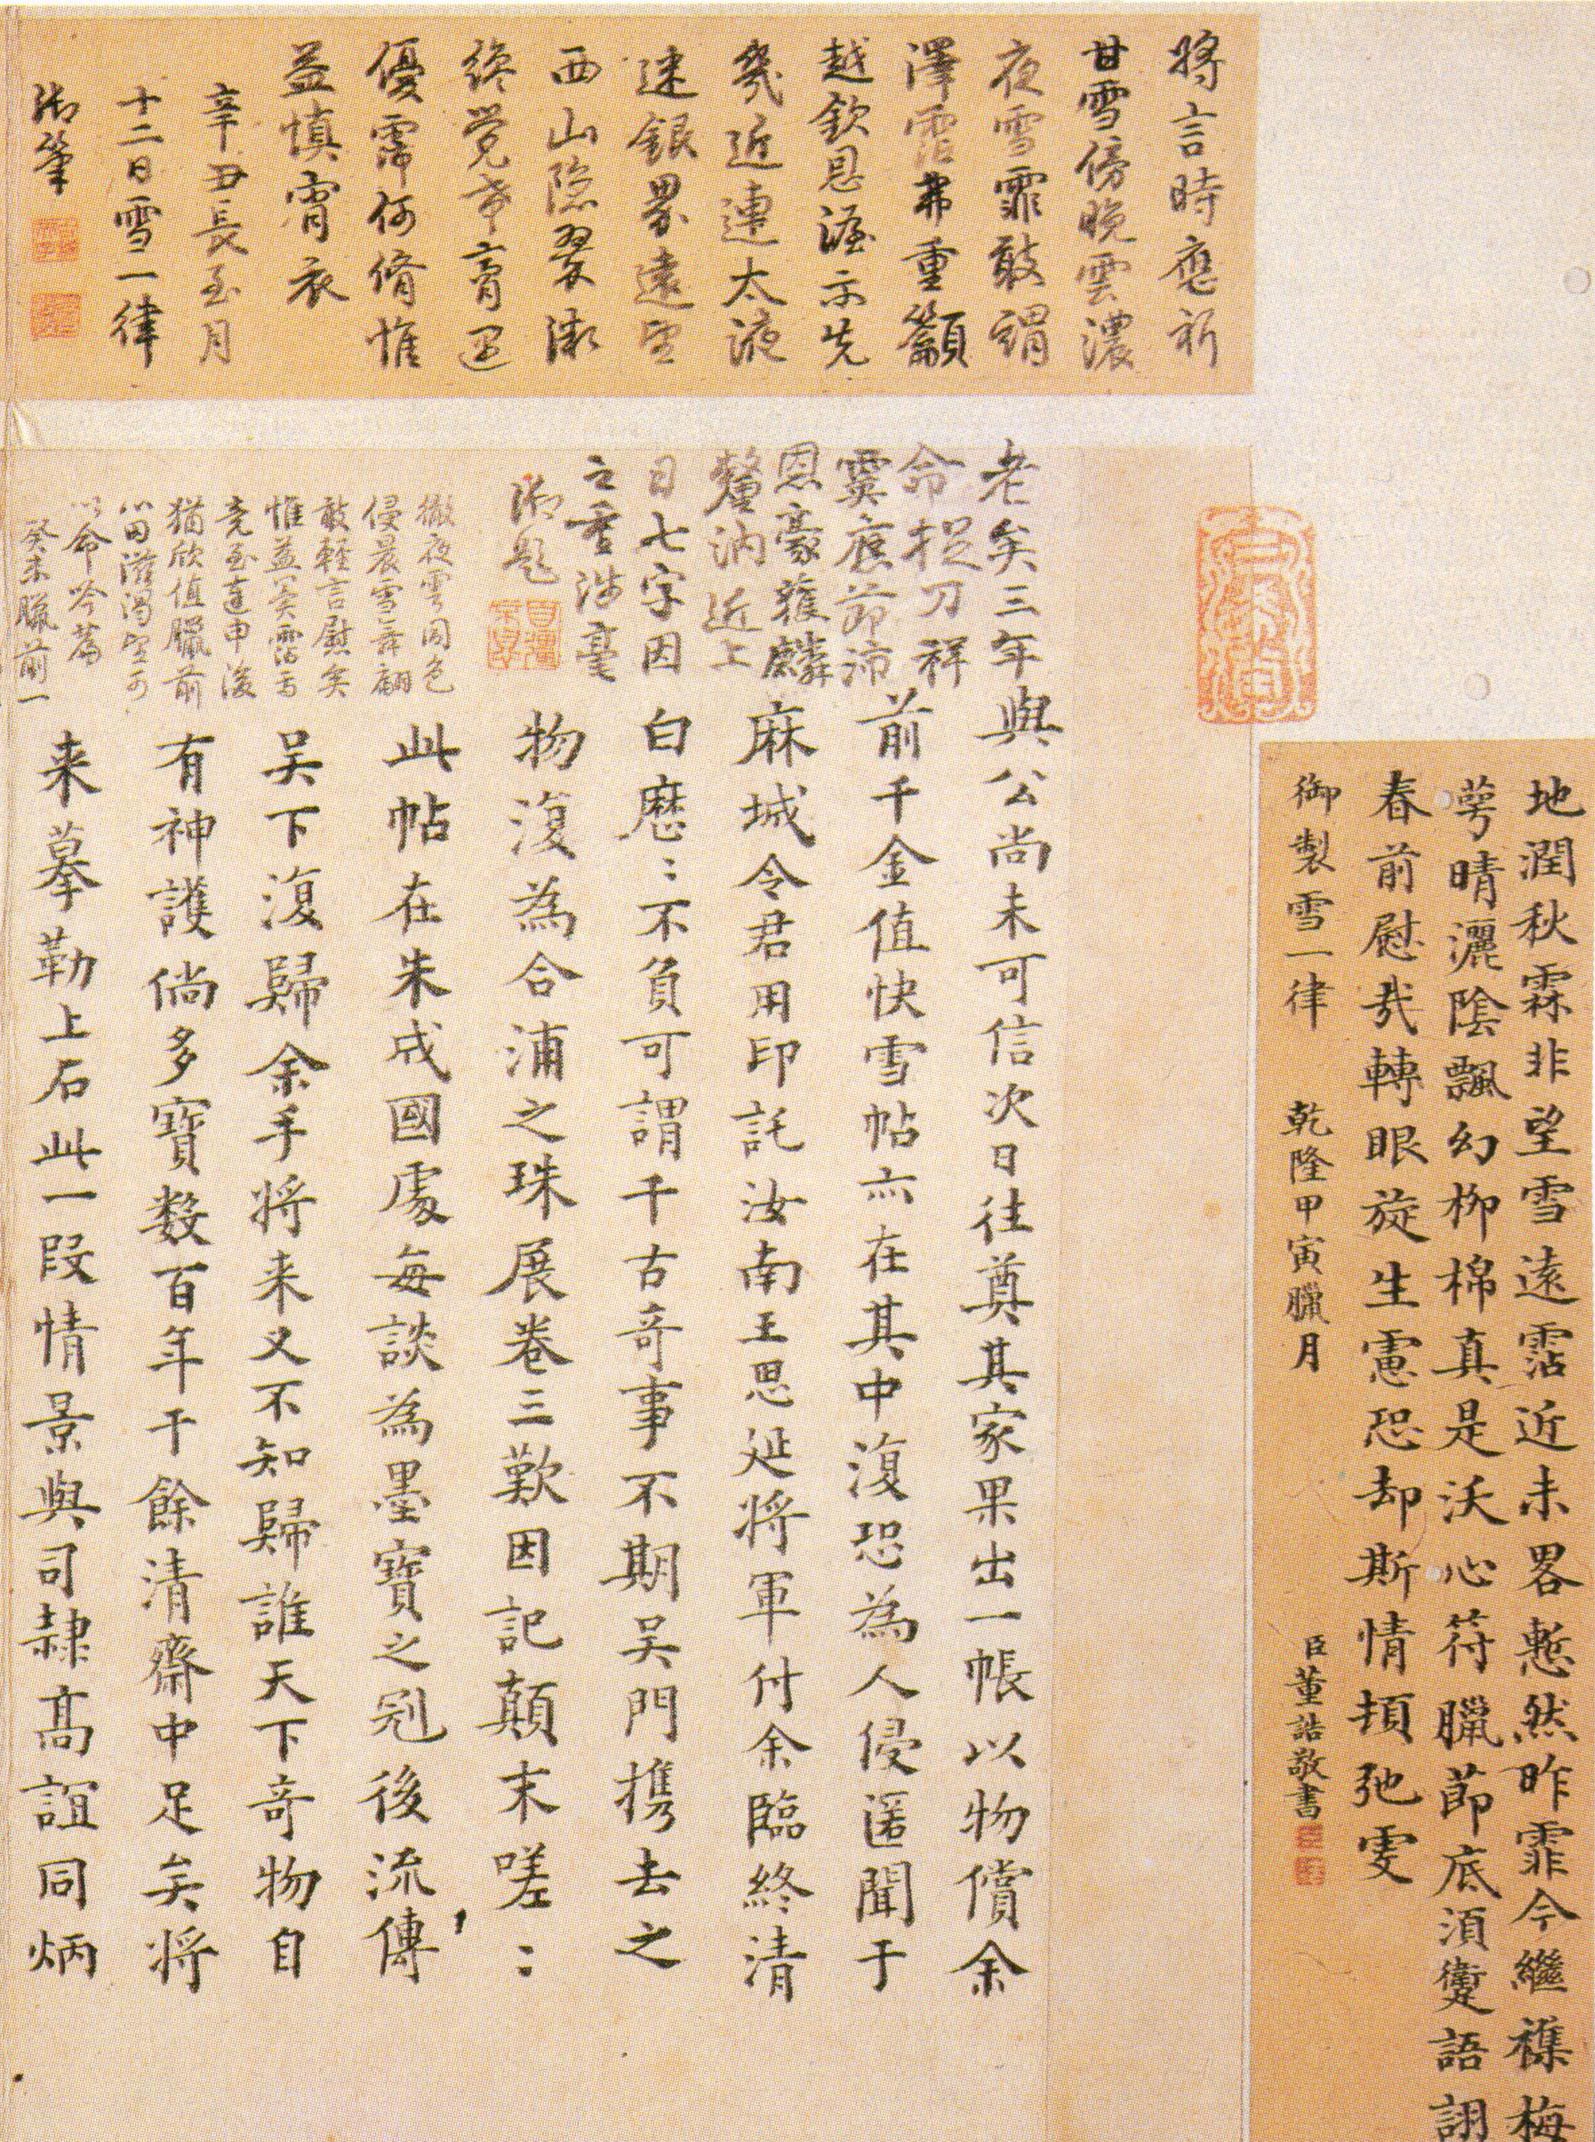 地潤秋霖非望雪遠霑近未畧慙然昨霏今繼襍梅
萼晴灑陰飄幻柳棉真是沃心符臘節底須躗語詡
春前慰哉轉眼旋生慮恐却斯情頓弛雯
御製雪一律 乾隆甲寅臘月
臣董誥敬書
將言時應祈
甘雪傍晚雲濃
夜雪霏敢謂
澤霑弗重籲
越欽恩渥示先
幾近連太液
迷銀界遠望
西山隱翠微
終覺希膏遲
優霈何脩惟
益慎宵衣
辛丑長至月
十二日雪一律
御筆
老矣三年
命捉刀祥
霙應節沛
恩豪蒦麟
釐汭近上
日七字因
之重涉毫
御題
徹夜雲同色
侵晨雪舞翩
敢輕言慰矣
惟益冀霑焉
竟至連申後
猶欣值臘前
心田滋渴望可
以命吟篇
癸未臘前一
與公尚未可信次日往奠其家果出一帳以物償余
前千金值快雪帖亦在其中復恐為人侵匿聞于
麻城令君用印託汝南王思延將軍付余臨終清
白歷：不負可謂千古奇事不期吴門攜去之
物復為合浦之珠展卷三歎因記顛末嗟：
此帖在朱成國處每談為墨寶之冠後流傳
吴下復歸余手將來又不知歸誰天下奇物自
有神護倘多寶數百年于餘清齋中足矣將
来摹勒上石此一段情景與司隸高誼同炳